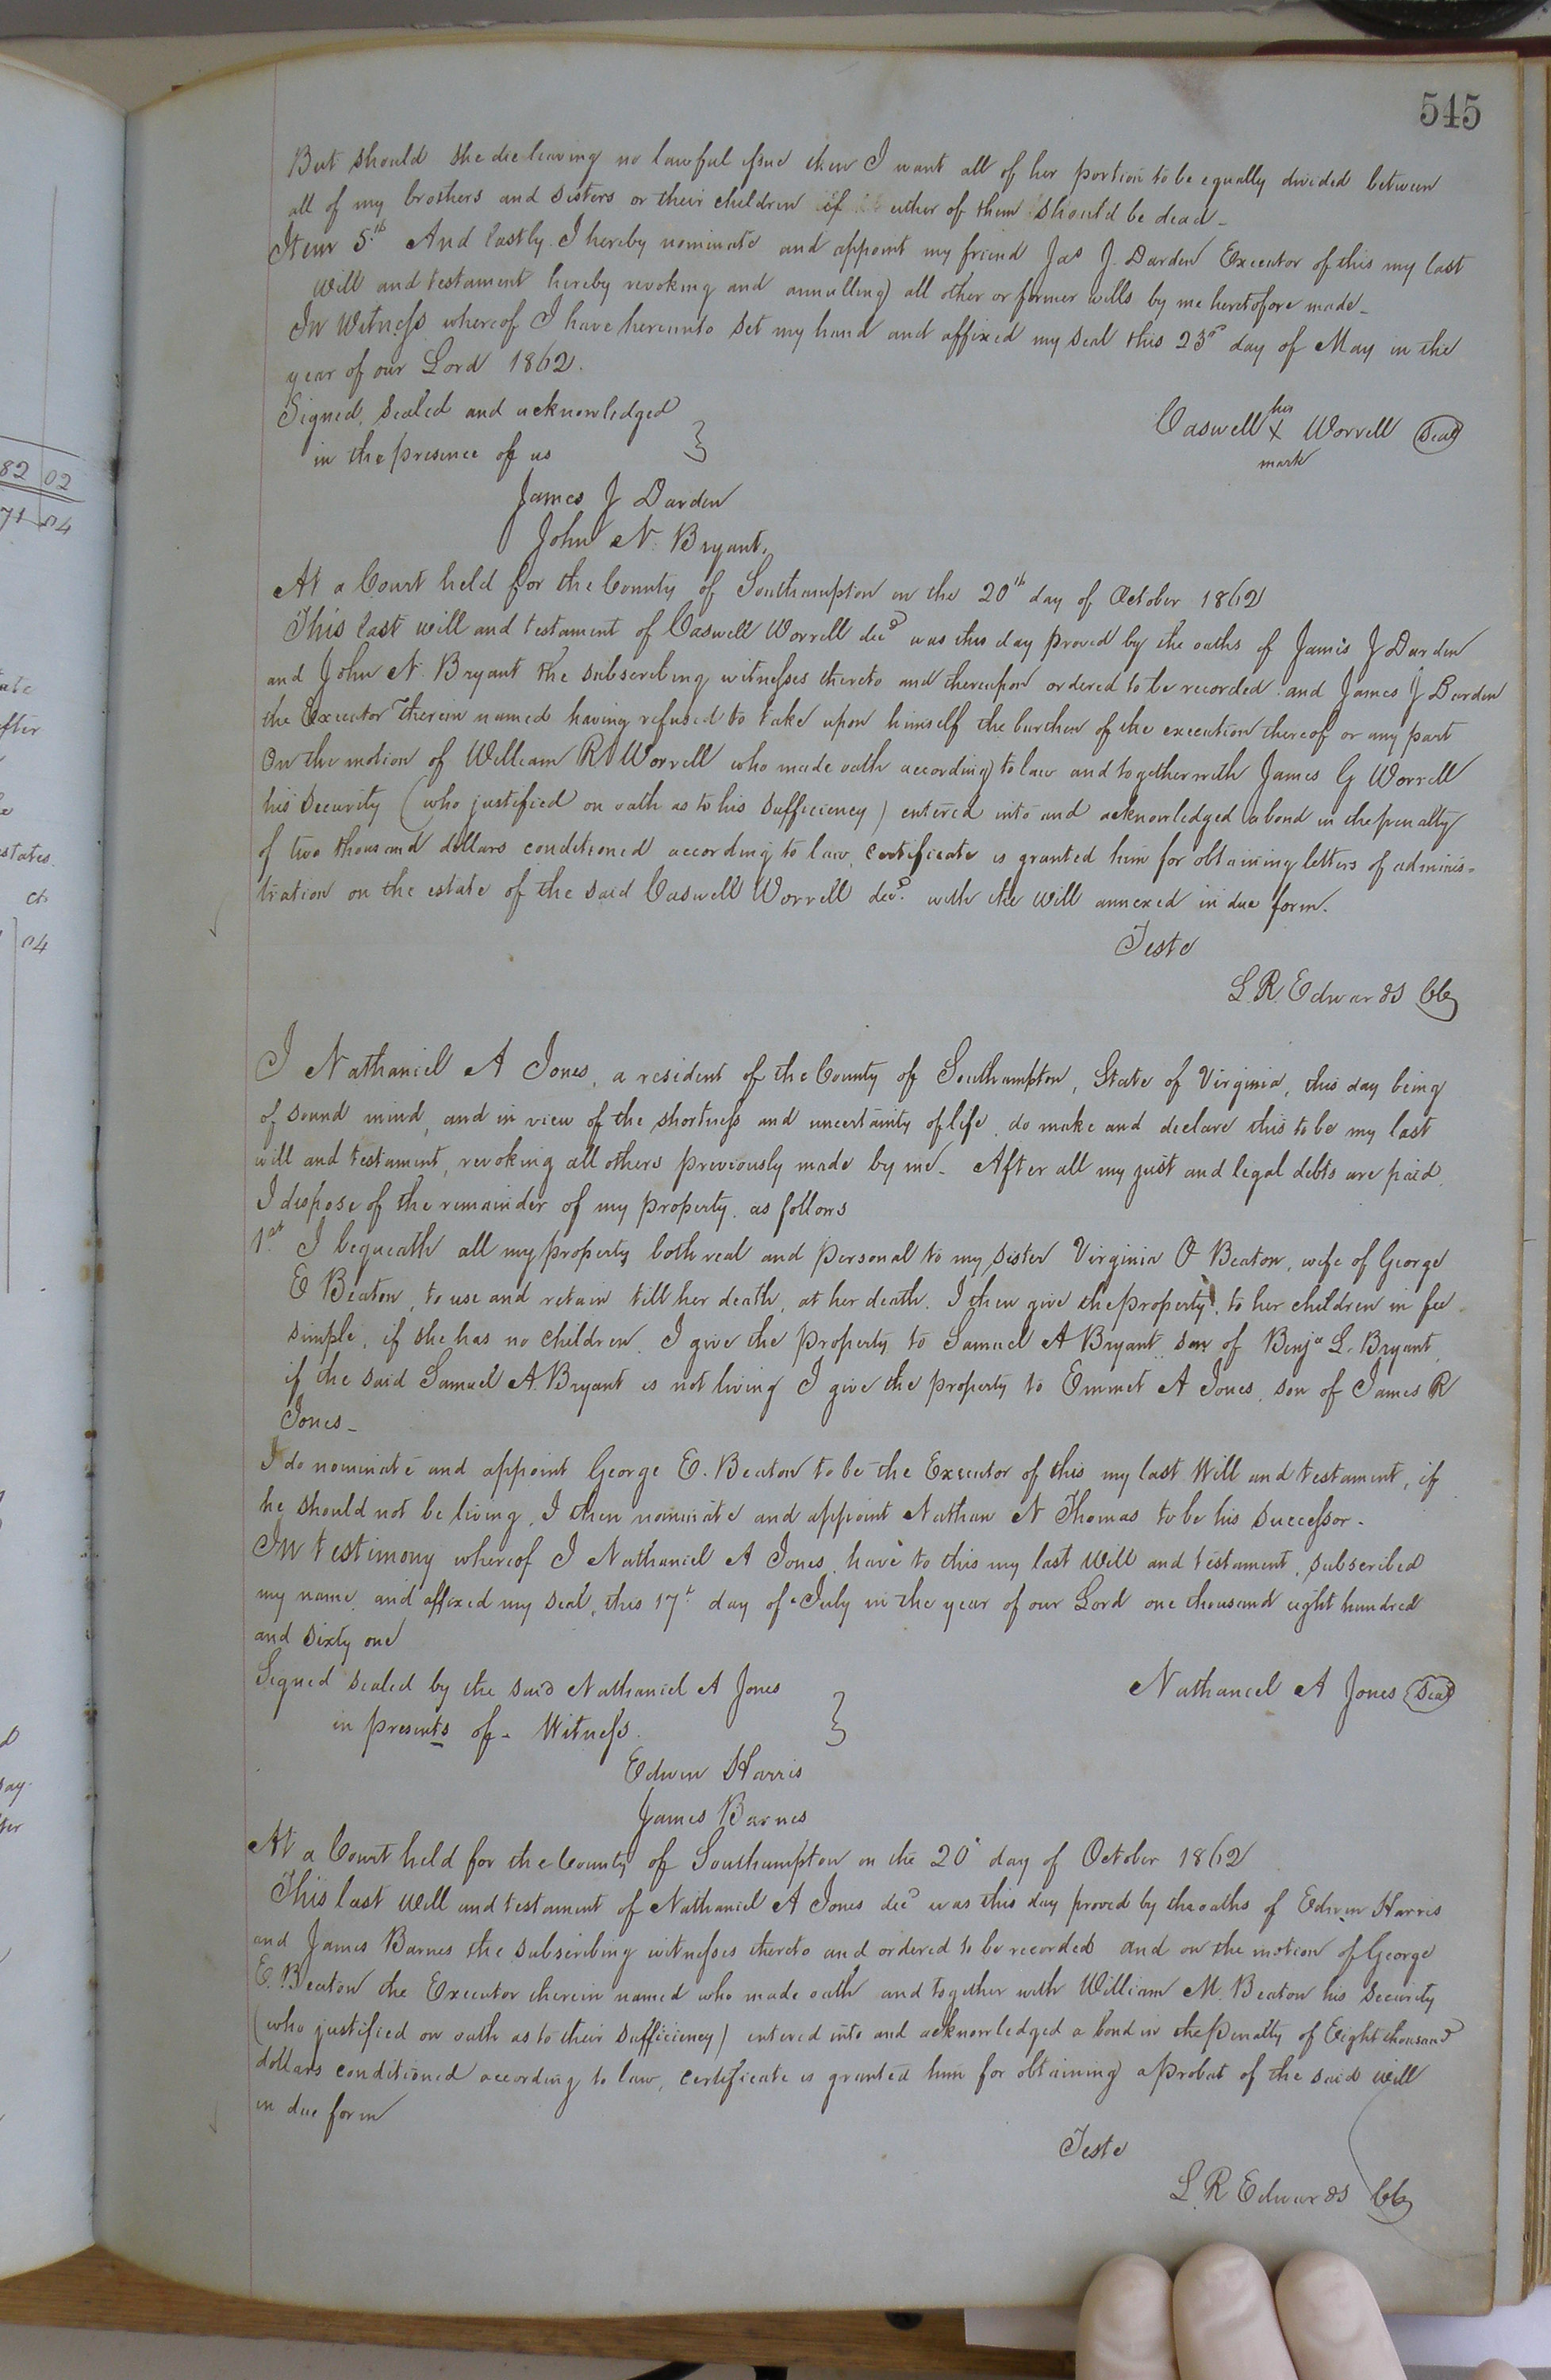 545
But should she die leaving no lawful issue then I want all of her portion to be equally divided between
all of my brothers and sisters or their children if either of them should be dead -
Item 5th And lastly I hereby nominate and appoint my friend Jas J. Darden Executor of this my last
will and testament hereby revoking and annulling all other or former wills by me heretofore made -
In Witness whereof I have hereunto set my hand and affixed my seal this 23d day of May in the
year of our Lord 1862.
Signed, sealed and acknowledged
in the presence of us
Caswell his X mark Worrell Seal
James J Darden
John N. Bryant.
At a Court held for the County of Southampton on the 20th day of October 1862
This last will and testament of Caswell Worrell decd was this day proved by the oaths of James J Darden
and John N. Bryant the subscribing witnesses thereto and thereupon ordered to be recorded. and James J Darden
the Executor therein named having refused to take upon himself the burthen of the execution thereof or any part
On the motion of William R Worrell who made oath according to law and together with James G Worrell
his security (who justified on oath as to his sufficiency) entered into and acknowledged a bond in the penalty
of two thousand dollars conditioned according to law, certificate is granted him for obtaining letters of adminis-
tration on the estate of the said Caswell Worrell decd. with the will annexed in due form.
Teste
L. R. Edwards Clk
I Nathaniel A Jones, a resident of the County of Southampton, State of Virginia, this day being
of sound mind, and in view of the shortness and uncertainty of life, do make and declare this to be my last
will and testament, revoking all others previously made by me - After all my just and legal debts are paid,
I dispose of the remainder of my property. as follows
1st. I bequeath all my property both real and personal to my sister Virginia O Beaton, wife of George
E Beaton, to use and retain till her death, at her death. I then give the property, to her children in fee
simple, if she has no children, I give the property to Samuel A Bryant, son of Benja L. Bryant,
if the said Samuel A. Bryant is not living I give the property to Emmet A Jones, son of James R
Jones -
I do nominate and appoint George E. Beaton to be the Executor of this my last Will and testament, if
he should not be living, I then nominate and appoint Nathan N Thomas to be his successor -
In testimony whereof I Nathaniel A Jones, have to this my last Will and testament, subscribed
my name, and affixed my seal, this 17th day of July in the year of our Lord one thousand eight hundred
and sixty one
Signed sealed by the said Nathaniel A Jones
in presents of - Witness.
Nathaniel A Jones Seal
Edwin Harris
James Barnes
At a Court held for the County of Southampton on the 20 day of October 1862
This last will and testament of Nathaniel A Jones decd was this day proved by the oaths of Edwin Harris
and James Barnes the subscribing witnesses thereto and ordered to be recorded and on the motion of George
E. Beaton the Executor therein named who made oath and together with William M. Beaton his security
(who justified on oath as to their sufficiency) entered into and acknowledged a bond in the penalty of Eight thousand
dollars conditioned according to law, certificate is granted him for obtaining a probat of the said will
in due form
Teste
L. R Edwards Clk
82 02
71 04
after
states.
04